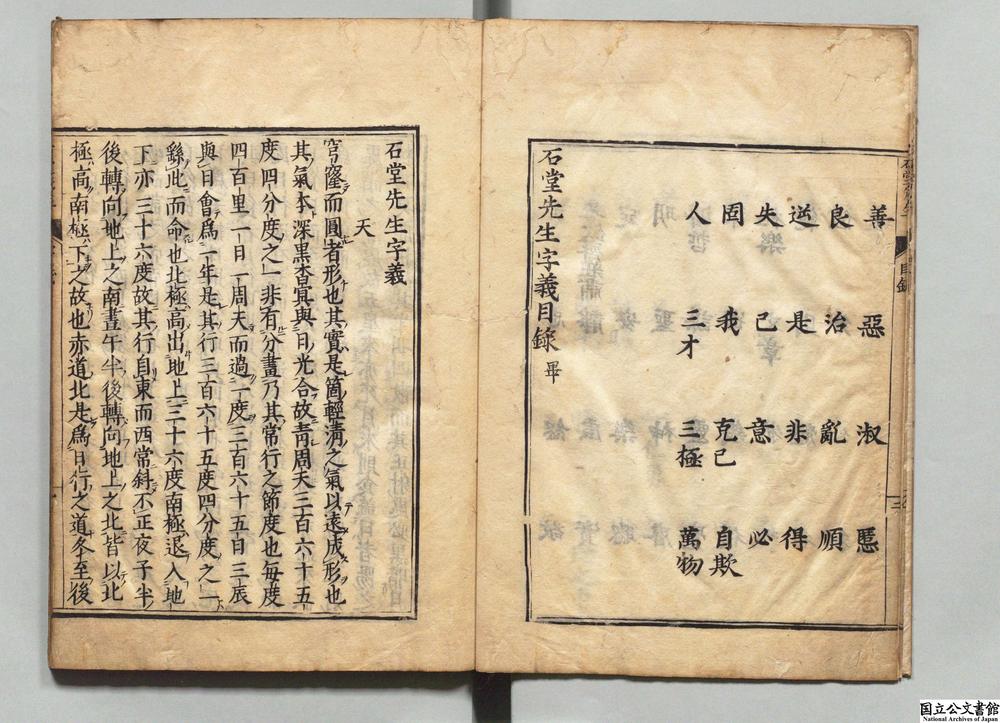 善 惡 淑 慝
良 治 亂 順
逆 是 非 得
失 己 意 必
固 我 克己 自欺
人 三才 三極 萬物
石堂先生字義目錄 畢
目錄
三
石堂先生字義
天
穹窿而圓者形也其實是箇輕清之氣以遠成形也
其氣本深黑杳冥與日光合故靑周天三百六十五
度四分度之一非有分畫乃其常行之節度也每度
四百里一日一周天而過一度三百六十五日三辰
與日會爲一年是其行三百六十五度四分度之一
繇此而命也北極高出地上三十六度南極退入地
下亦三十六度故其行自東而西常斜不正夜子半
後轉向地上之南晝午半後轉向地上之北皆以北
極高南極下之故也赤道北是爲日行之道冬至後
国立公文書館
National Archives of Japan